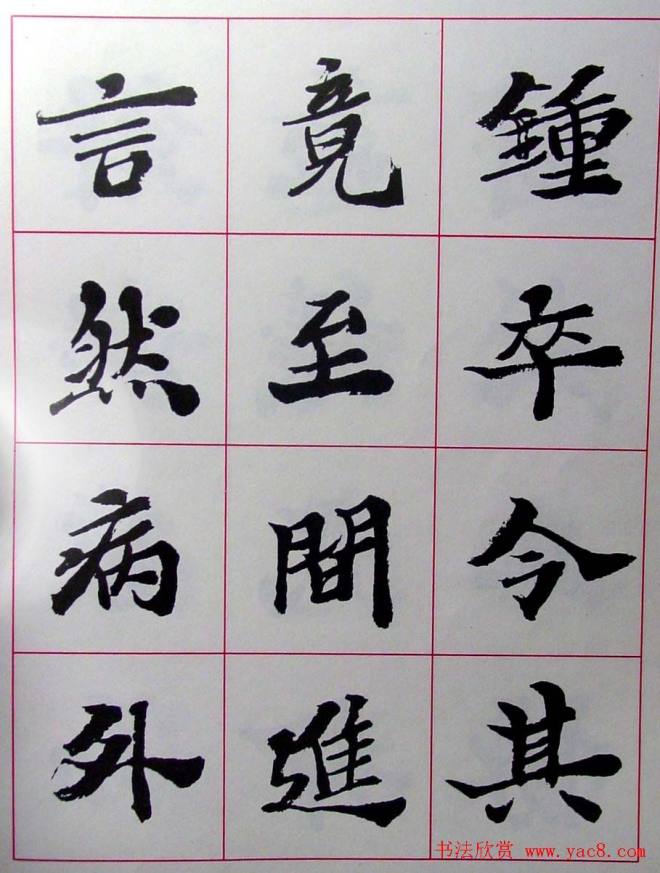 鍾卒令其
竟至間進
言然病外
书法欣赏 www.yac8.com